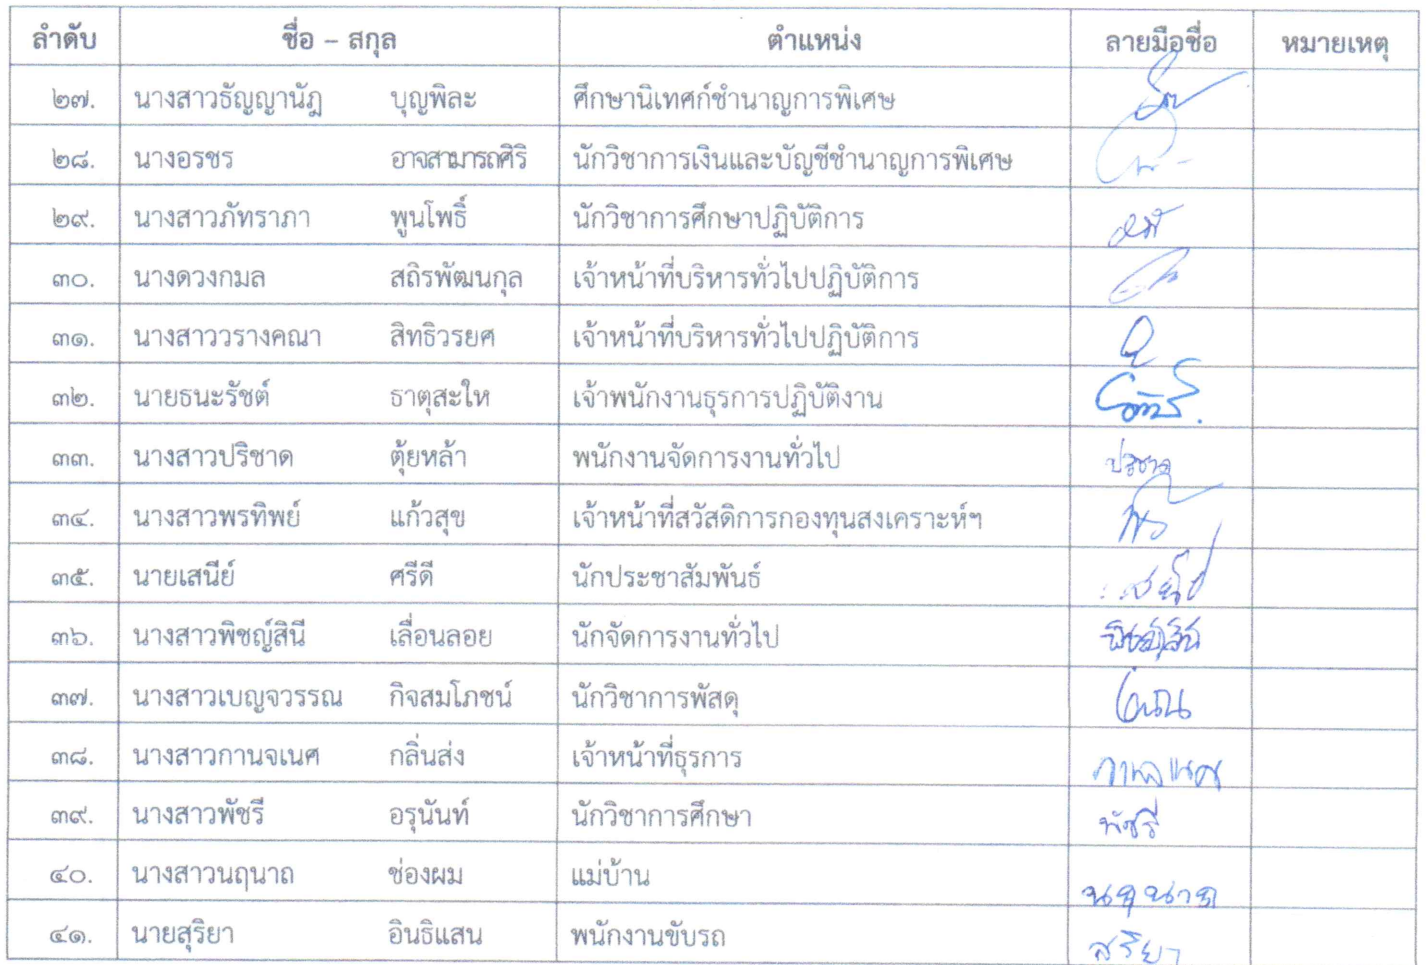 ลำดับ ชื่อ – สกุล ตำแหน่ง ลายมือชื่อ หมายเหตุ
๒๗. นางสาวธัญญานัฎ บุญพิละ ศึกษานิเทศก์ชำนาญการพิเศษ
๒๘. นางอรชร อาจสามารถศิริ นักวิชาการเงินและบัญชีชำนาญการพิเศษ
๒๙. นางสาวภัทราภา พูนโพธิ์ นักวิชาการศึกษาปฏิบัติการ
๓๐. นางดวงกมล สถิรพัฒนกุล เจ้าหน้าที่บริหารทั่วไปปฏิบัติการ
๓๑. นางสาววรางคณา สิทธิวรยศ เจ้าหน้าที่บริหารทั่วไปปฏิบัติการ
๓๒. นายธนะรัชต์ ธาตุสะให เจ้าพนักงานธุรการปฏิบัติงาน
๓๓. นางสาวปริชาด ตุ้ยหล้า พนักงานจัดการงานทั่วไป ปริชาด
๓๔. นางสาวพรทิพย์ แก้วสุข เจ้าหน้าที่สวัสดิการกองทุนสงเคราะห์ฯ
๓๕. นายเสนีย์ ศรีดี นักประชาสัมพันธ์
๓๖. นางสาวพิชญ์สินี เลื่อนลอย นักจัดการงานทั่วไป พิชญ์สินี
๓๗. นางสาวเบญจวรรณ กิจสมโภชน์ นักวิชาการพัสดุ
๓๘. นางสาวกานจเนศ กลิ่นส่ง เจ้าหน้าที่ธุรการ กานจเนศ
๓๙. นางสาวพัชรี อรุนันท์ นักวิชาการศึกษา พัชรี
๔๐. นางสาวนฤนาถ ช่องผม แม่บ้าน นฤนาถ
๔๑. นายสุริยา อินธิแสน พนักงานขับรถ สุริยา